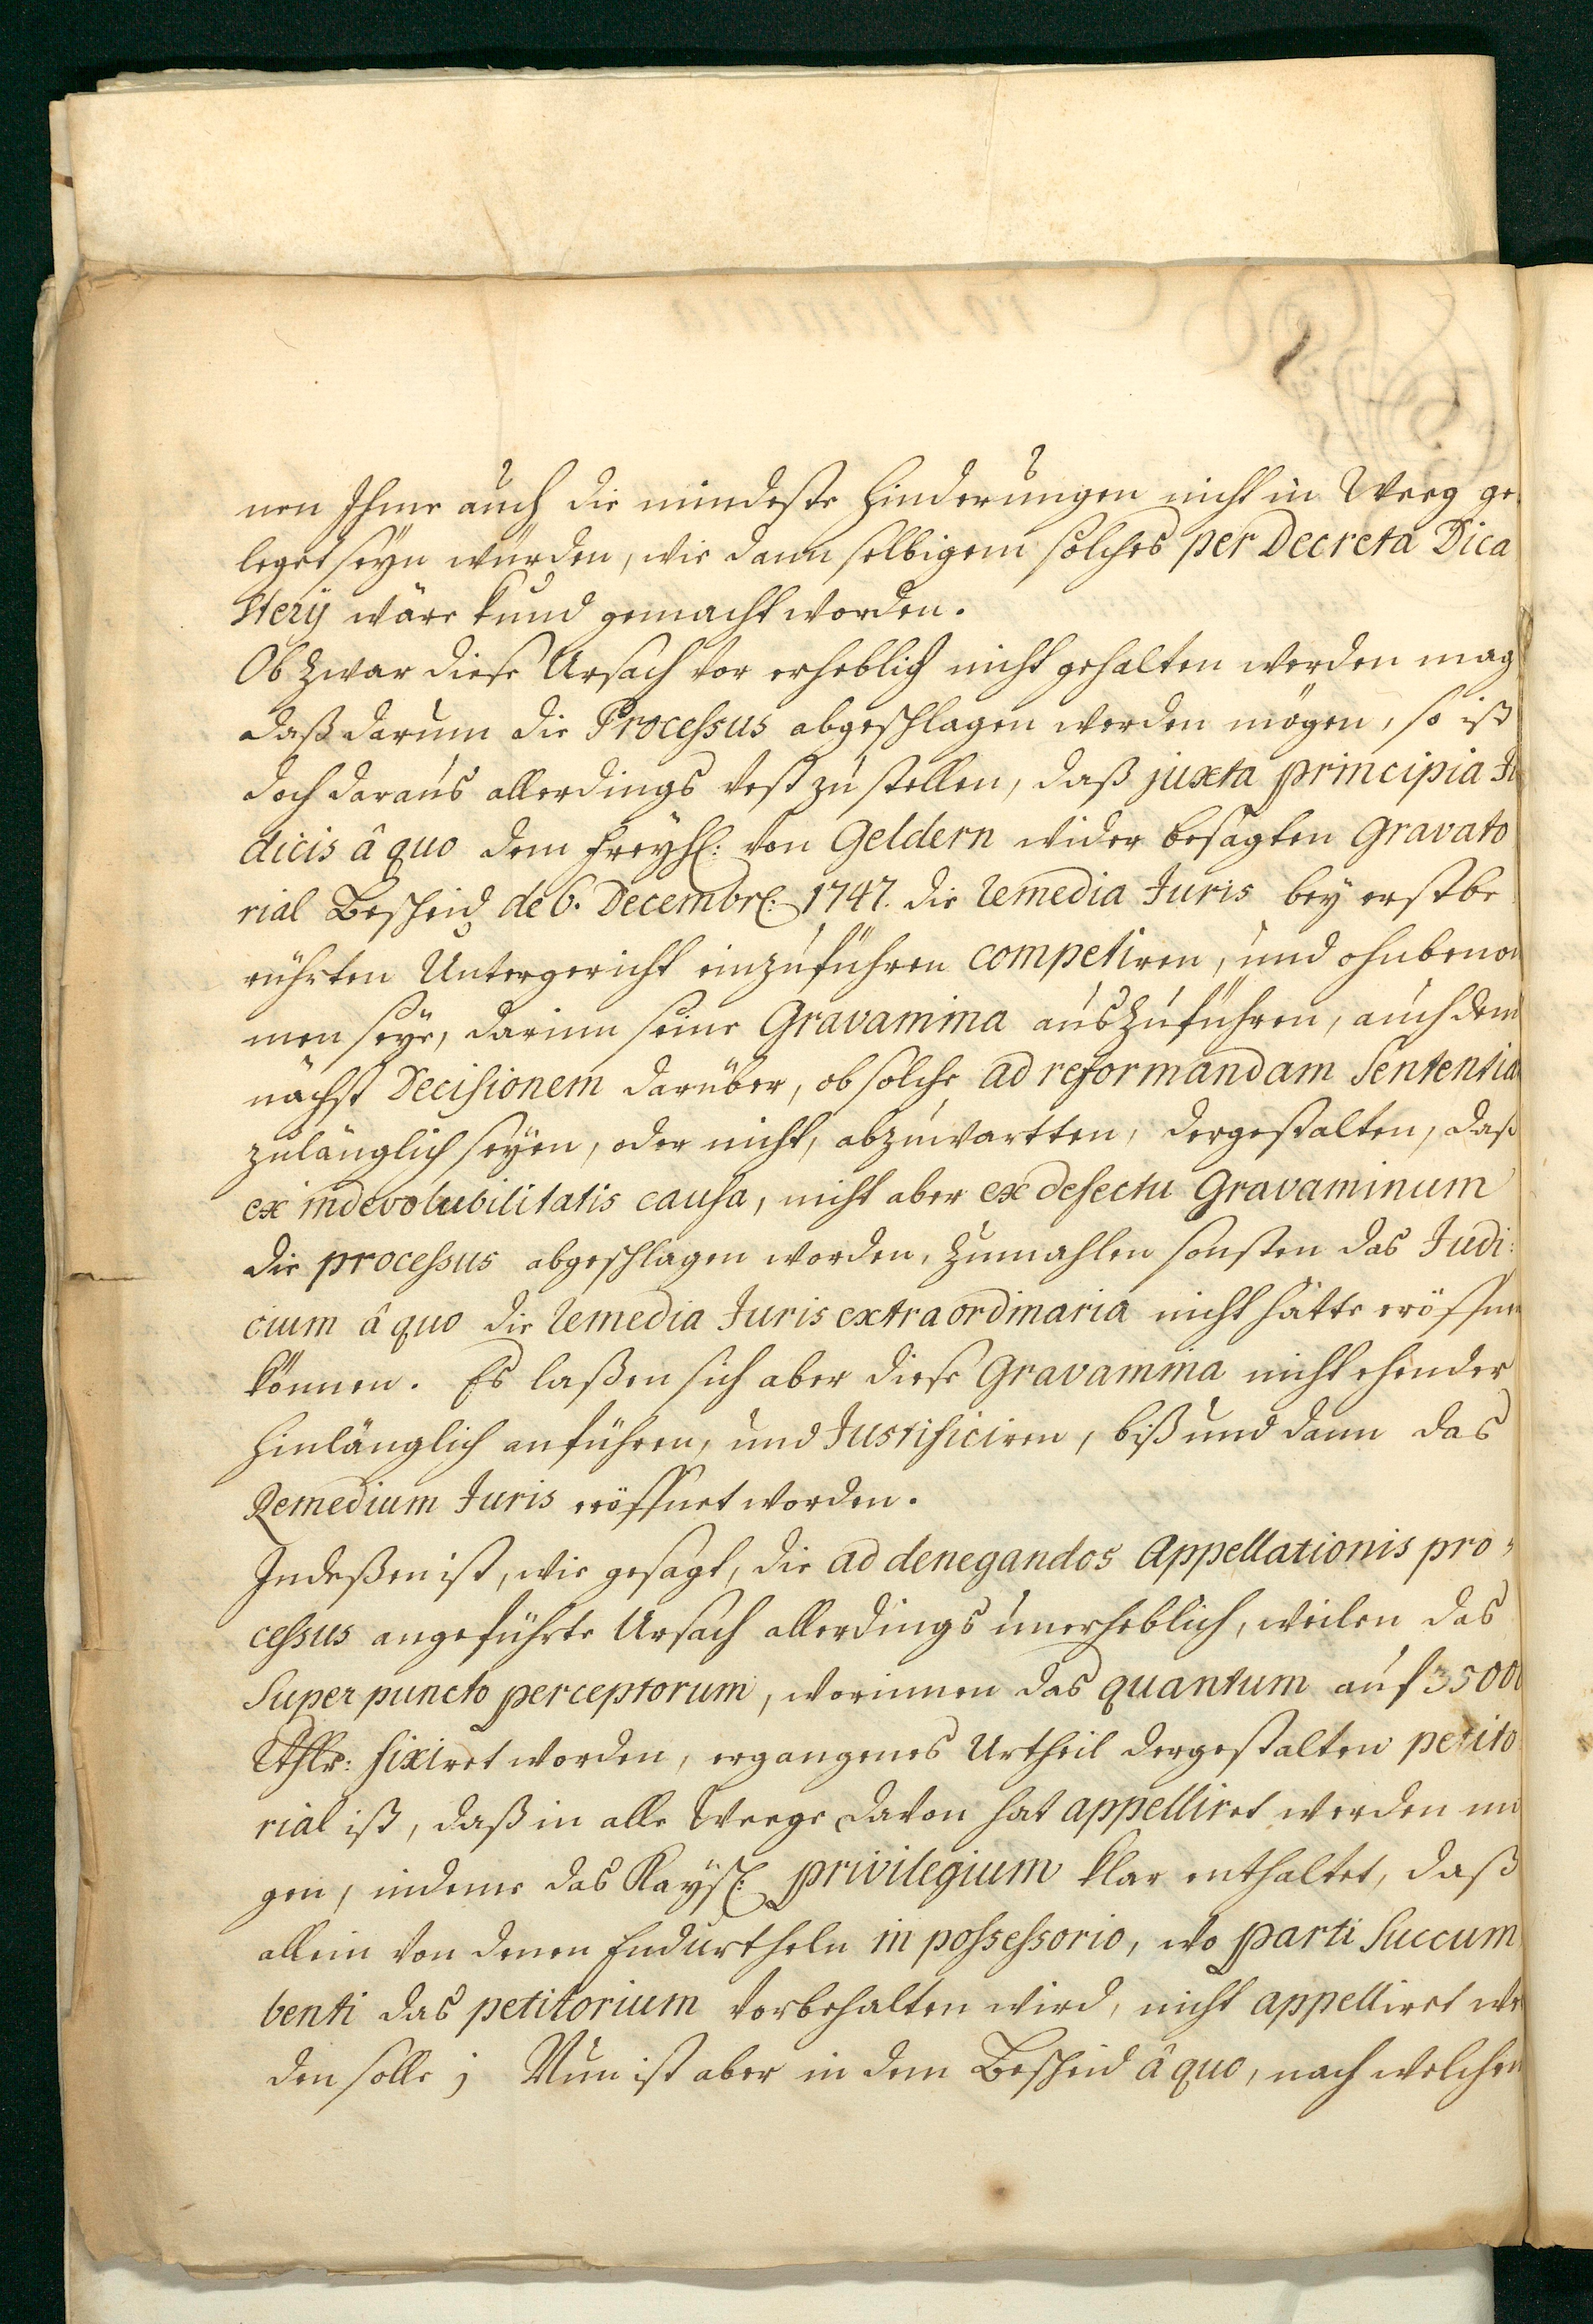 nen Ihme auch die mindeste hinderungen nicht in Weeg ge
leget seyn würden, wie dann selbigem solches per Decreta Dica
sterÿ wäre kund gemacht worden.
Ob zwar diese Ursach vor erheblich nicht gehalten werden mag
daß darum die Processus abgeschlagen werden mögen, so ist
doch daraus allerdings vest zu stellen, daß juxta principia Ju
dicis â quo dem freyh: von Geldern wider besagten Gravato
rial Bescheid de 6. Decembr: 1747. die remedia Juris bey erstbe
rührten Untergericht einzuführen competiren, und ohnbenom
men seye, darinn seine Gravamina auszuführen, auch dem
nächst Decisionem darüber, ob solche ad reformandam Sententia
zulänglich seyen, oder nicht, abzuwartten, dergestalten, daß
ex indevolubilitatis causa, nicht aber ex defectu Gravaminum
die processus abgeschlagen worden, zumahlen sonsten das Judi:
cium â quo die remedia Juris extraordinaria nicht hätte eröffnen
können. Es laßen sich aber diese Gravamina nicht ehender
hinlänglich anführen, und Justificiren, biß und dann das
Remedium Juris eröffnet worden.
Indeßen ist, wie gesagt, die ad denegandos Appellationis pro=
cessus angeführte Ursach allerdings unerheblich, weilen das
Super puncto perceptorum, worinnen das quantum auf 3500
Rthlr: fixiret worden, ergangenes Urtheil dergestalten petito
rial ist, daß in alle Weege davon hat appelliret werden mö
gen, indeme das Kaysl: privilegium klar enthaltet, daß
allein von denen Endurtheln in possessorio, wo parti Succum
benti das petitorium vorbehalten wird, nicht appelliret wer
den solle; Nun ist aber in dem Bescheid â quo, nach welchen